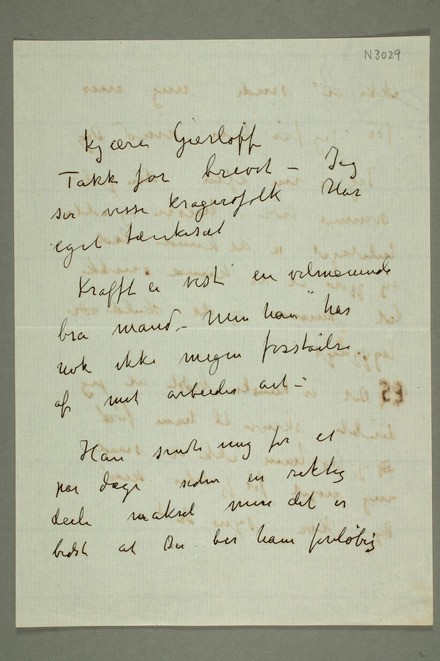 N 3029
Kjære Gierløff
Takk for brevet – Jeg
ser visse Kragerøfolk har
eget tankesæt
Krafft er visst en velmenende
bra mand – Men han har
nok ikke megen forståelse
af mit arbeides art –
Han sendte mig for et
par dage siden en riktig
men det er
bedst at De ber ham foreløbig